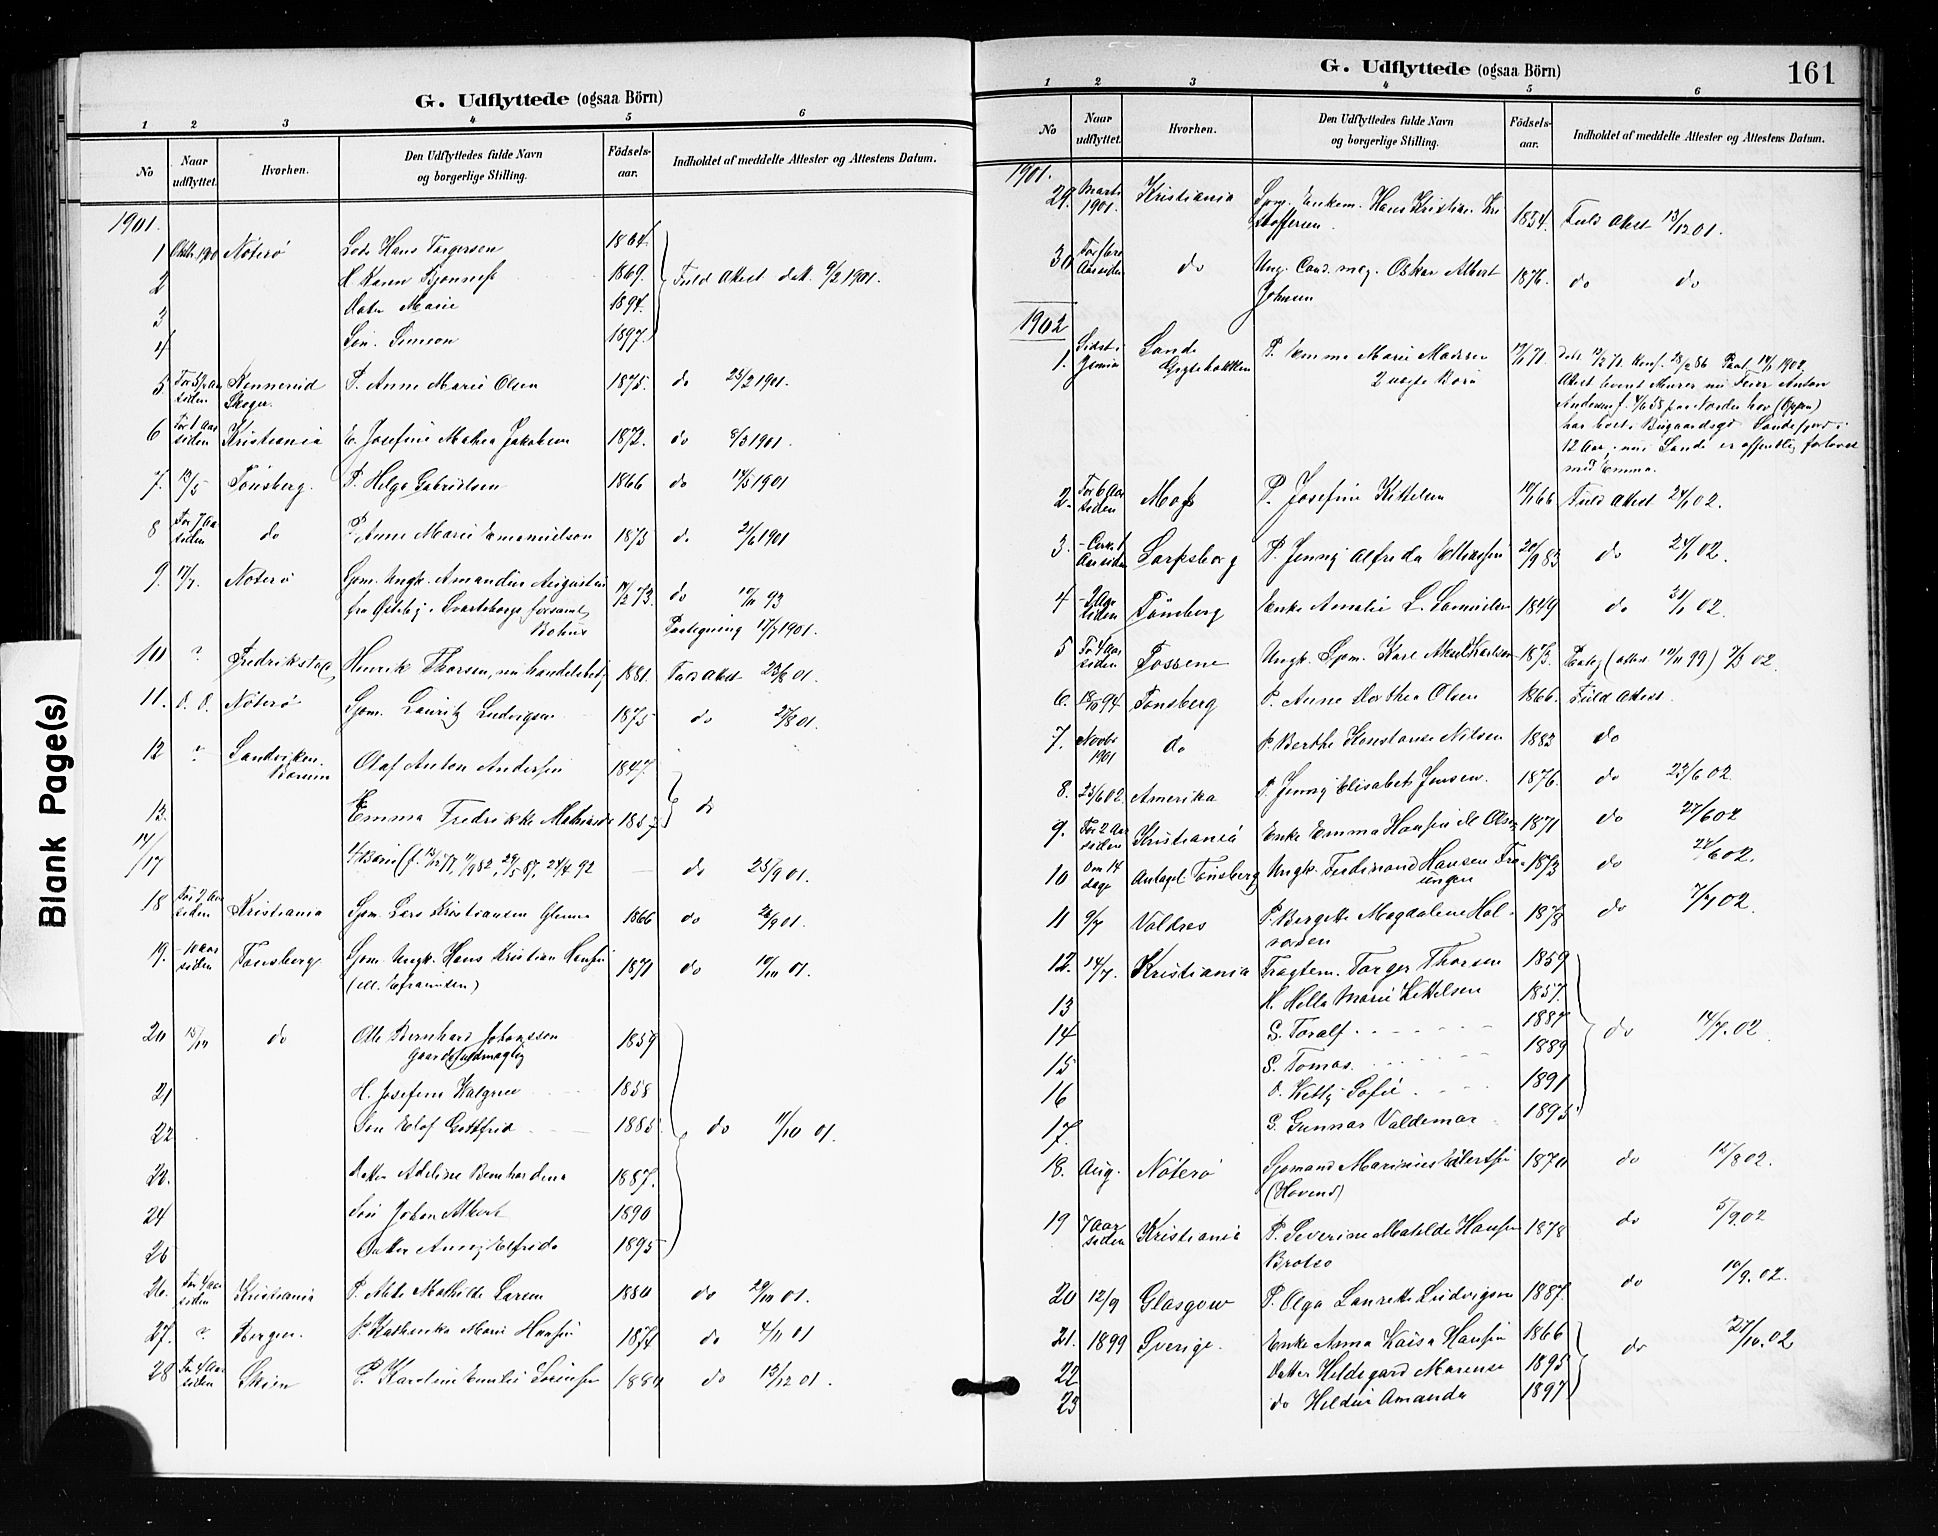 Blank Page(s)
G. Udflyttede (ogsaa Börn)
1 2 3 4 5 6
No
Naar udflyttet.
Hvorhen.
Den Udflyttedes fulde Navn og borgerlige Stilling.
Födsels-aar.
Indholdet af meddelte Attester og Attestens Datum.
1901.
1 Nöterö Lods Hans Torgersen 1864
2 H. Karen 1869. Fuld Attest dat. 9/2 1901.
3 Dater Marie 1894.
4 Sön Simon 1897.
5 For 3/4 Aar siden Skoger. P. Anne Marie Olsen 1875. do 25/2 1901.
6 For 1 Aar siden Kristiania E. Josefine Mathea Jakobsen 1872. do 8/3 1901.
7. 13/5 Tönsberg. P. Helga Gabrielsen 1866 do 14/5 1901
8 For 7 Aar siden do P. Anne Marie Emanuelsen 1873 do 21/6 1901
9. 17/7. Nöterö Sjöm. Ungk. Amandus Augustin
fra Östeby i Svarteborgs forsaml.
Bohus 73. do 93
Paategning 17/7 1901.
10 ? Fredrikstad, Henrik Thorsen, nu handelsbetj. 1881. Fuld Attest 23/8 01.
11. D. D. Nöterö Sjöm. Lauritz Ludvigsen 1875 do 27/8 01.
12 ? Sandviken. Bærum Olaf Anton Andersen 1847.
13. Emma Fredrikke 1857 do
14/17 4 Börn (f. 77, 82, 29/5 87, 24/4 92 — do 25/9 01.
18 For 2 Aar siden Kristiania Sjöm. Lars Kristiansen Glenne 1866 do 26/9 01.
19. - 10 Aar siden Tönsberg Sjöm. Ungk. Hans Kristian Hansen
(ell. Efraimsen) 1871 do 01.
20 15/10 do Otto Bernhard Johanssen
Gaardsfuldmægtig 1859
21 H. Josefine 1858
22 Sön Elof Gottfrid 1885. do 11/10 01.
23. Datter Adeline Bernhardine 1887.
24 Sön Johan Albert 1890
25 Datter Elfrida 1895
26. For 4 Aar siden Kristiania P. Mathilde Larsen 1880 do 29/10 01.
27. ? Bergen. P. Kathinka Marie Hansen 1874 do 4/11 01
28 For 4 Aar siden Skien P. Karoline Emilie Sörensen do 13/12 01.
G. Udflyttede (ogsaa Börn)
161
1 2 3 4 5 6
No
Naar udflyttet
Hvorhen.
Den Udflyttedes fulde Navn og borgerlige Stilling.
Födsels-aar.
Indholdet af meddelte Attester og Attestens Datum.
1901.
29. Marts 1901. Kristiania Sjöm. Enkem. Hans Kristian Kri
stoffersen. 1854. Fuld Attest 13/12 01.
30 For flere Aar siden do Ung. Cand. mag. Oskar Albert
Johnsen 1876. do do
1902
1. Sidst i Sande P. Emma Marie Madsen
2 uægte Börn 17/1 71.
Attest hvori Murer nu Feier Anton
har boet i Bugaardsgd. Sandefjord i
12 Aar, nu Sande er offentlig forlovet
med Emma.
2. For 6 Aar siden Moss P. Josefine Kittelsen 66 Fuld Attest 24/1 02.
3. - Cirka 1 Aar siden Sarpsborg P. Jenny Alfreda 20/9 83 do 24/1 02.
4 - 2 Aar siden Tönsberg Enke Amalie L. Samuelsen 1849 do 31/1 02.
5 For 4 Aar siden Tossene Ungk. Sjöm. Karl Aksel Karlsen 1873. Paateg. (attest 99) 02.
6. 94 Tönsberg P. Anne Dorthea Olsen 1866. Fuld Attest.
7. Novbr 1901 do P. Berthe Konstanse Nilsen 1883 do
8. 23/6 02. Amerika P. Jenny Elisabeth Jensen. 1876. do 23/6 02.
9. For 2 Aar siden Kristiania Enke Emma Hansine Olsen 1871 do 27/6 02
10 Om 14 dage Antagel. Tönsberg Ungk. Ferdinand Hansen
1873 do 27/6 02.
11 9/7 Valdres P. Bergitte Magdalene Hal-
vorsen 1878 do 7/7 02.
12. 14/7. Kristiania Fragtem. Torger Thorsen 1859
13 H. Helle Marie Kittelsen 1857.
14 S. Toralf 1887 do 14/7. 02
15 S. Tomas 1889
16 D. Ketty Sofie 1891
17. S. Gunnar Valdemar 1895.
18. Aug. Nöterö Sjömand Marinius Eilertsen
(Hovend) 1870 do 12/8 02.
19 7 Aar siden Kristiania P. Severine Matilde Hansen
1878 do 5/9 02
20 12/9 Glasgow P. Olga Laurette Ludvigsen 1887. do 10/9. 02.
21. 1899 Sverige. Enke Anna Kaisa Hansen 1866 do 27/10. 02
22 Datter Hildegard Marense 1895
23 do Heldine Amanda 1897